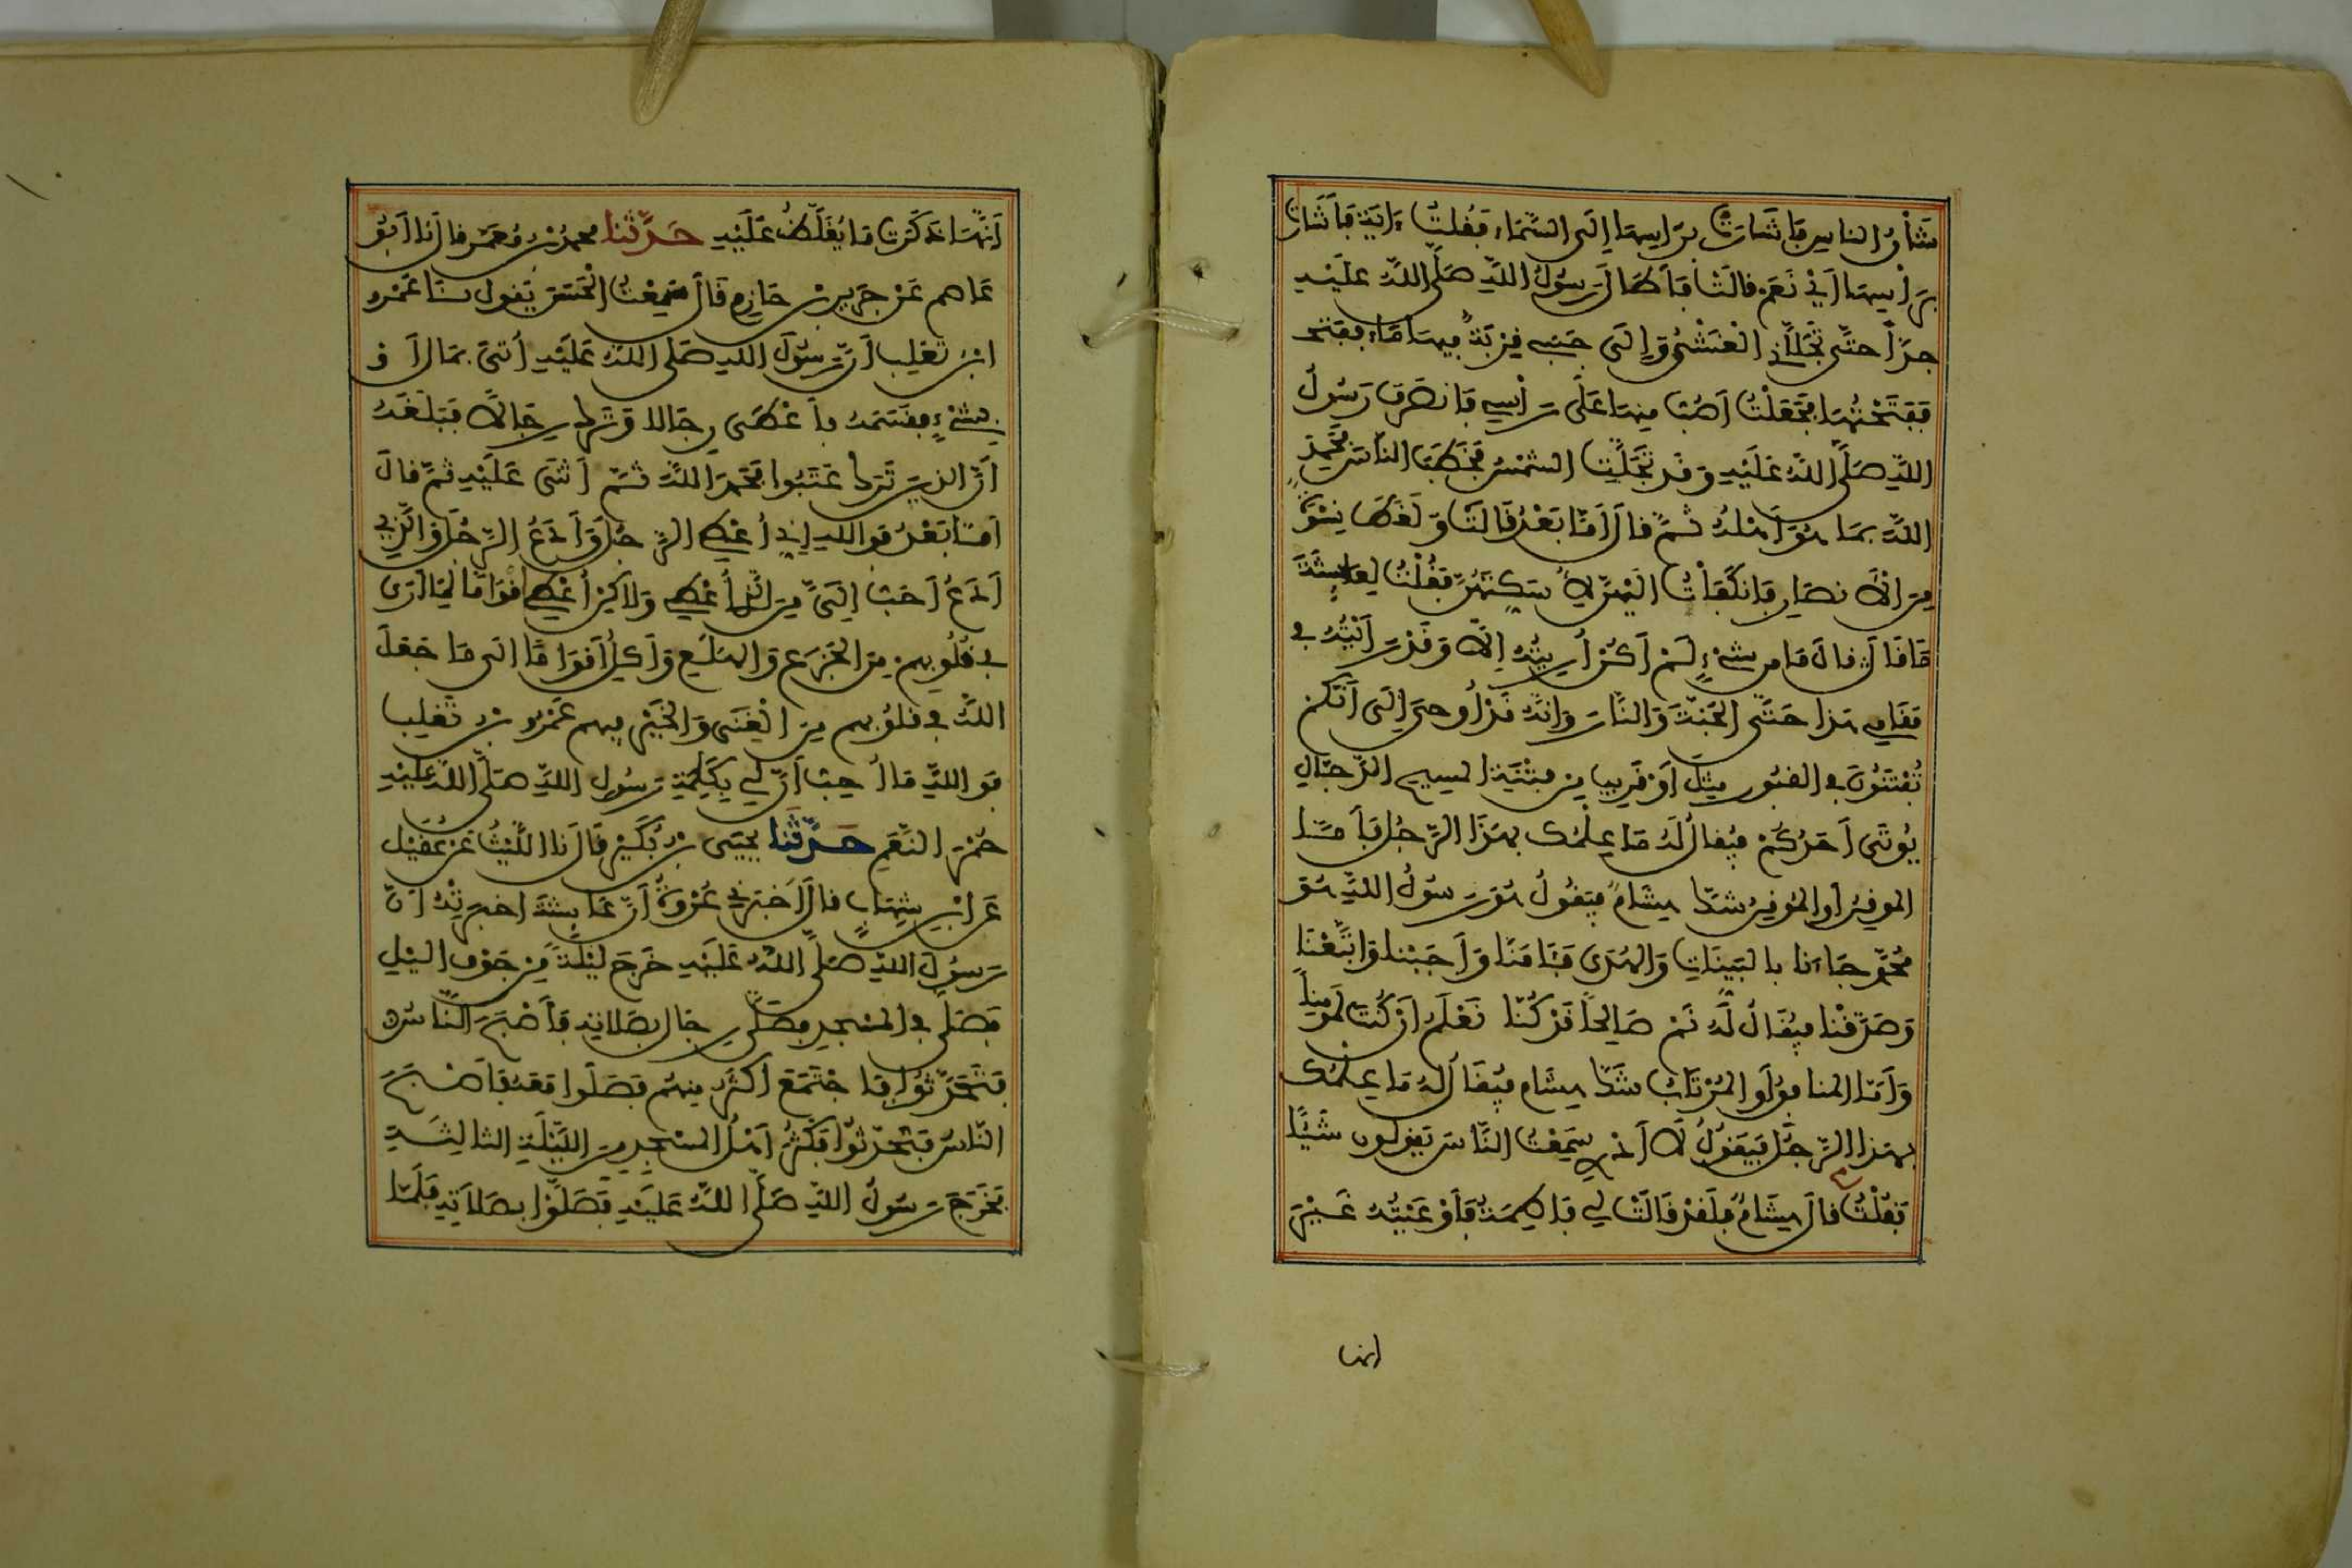 شَأْنُ الناسِ فَأَشَارَتْ بِرَأسِهَا إِلَى السَّمَاءِ فَقُلتُ ءَايَةٌ فَأَشَارَتْ
بِرَأْسِهَا أَيْ نَعَمْ قالَتْ فَأَطَالَ رَسُولُ اللَّهِ صَلَّى اللَّهُ عَلَيْهِ
جِدّاً حتَّى تَجَلَّانِي الْغَشْيُ وَإِلَى جَنْبِي قِرْبَةٌ فِيهَا مَاءٌ فَفَتَحْـ
فَفَتَحْتُهَا فَجَعَلْتُ أَصُبُّ مِنهَا عَلَى رَأْسِي فَانصَرَفَ رَسُولُ
اللَّهِ صَلَّى اللَّهُ عَلَيْهِ وَقَد تَجَلَّتِ الشَّمْسُ فَخَطَبَ النَّاسَ فَحَمِدَ
اللَّهَ بِمَا هُوَ أَهْلُهُ ثُمَّ قالَ أَمَّا بَعْدُ قَالَتْ وَلَغَطَ نِسْوَةٌ
مِنَ الأَنصَارِ فَانكَفَأْتُ إِلَيْهِنَّ لِأُسَكِّتَهُنَّ فَقُلْتُ لِعَائِشَةَ
مَا قَالَ قالَ مَا مِن شَيْءٍ لَمْ أَكُنْ أُرِيتُهُ إِلَّا وَقَدْ رَأَيْتُهُ فِي
مَقَامِي هَذَا حَتَّى الْجَنَّةَ وَالنَّارَ وَإِنَّهُ قَدْ أُوحِيَ إِلَى أَنَّكُمْ
تُفْتَنُونَ فِي القُبُورِ مِثْلَ أَوْ قَرِيبا مِن فِتْنَةِ المَسِيحِ الدَّجَّالِ
يُوتَى أَحَدُكُمْ فَيُقالُ لَهُ مَا عِلْمُكَ بِهَذَا الرَّجُلِ فَأَمَّا
المُومِنُ أَوِ المُوقِنُ شَكَّ هِشَامٌ فَيَقُولُ هُوَ رَسُولُ اللَّهِ هُوَ
مُحَمَّدٌ جَاءَنَا بِالبَيِّنَاتِ وَالهُدَى فَـَٔامَنَّا وَأَجَبْنَا وَاتَّبَعْنَا
وَصَدَّقْنَا فَيُقَالُ لَهُ نَمْ صَالِحاً قَدْ كُنَّا نَعْلَمُ إِن كُنتَ لَمُومِناً
وَأَمَّا المُنافِقُ أَوِ المُرْتَابُ شَكَّ هِشَام فَيُقَالُ لَهُ مَا عِلْمُكَ
بِهَذَا الرَّجُلِ فَيَقُولُ لَا أَدْرِي سَمِعْتُ النَّاسَ يَقولونَ شَيْئًا
فَقُلْتُ قالَ هِشَامٌ فَلَقَدْ قَالَتْ لِي فَاطِمَةُ فَأَوْعَيْتُهُ غَيْرَ
انها
أَنَّهَا ذَكَرَت مَا يُغَلَّظُ عَلَيْهِ حَدَّثَنا محمدُ بْنُ مَعْمَرٍ قالَ نَا أَبُو
عَاصِم عَنْ جَرِيرِ بْنِ حَازِمٍ قَالَ سَمِعْتُ الْحَسَنَ يَقول نَا عَمْرو
ابْنُ تَغْلِبَ أَنَّ رَسُولَ اللهِ صَلى اللَّهُ عَلَيْهِ أُتِيَ بِمَالٍ أَو
بِشَيْءٍ فَقَسَمَهُ فأَعْطَى رِجَالا وَتَرَكَ رِجَالاً فَبَلَغَهُ
أَنَّ الذِينَ تَرَكَ عَتَبُوا فَحَمِدَ اللَّهَ ثُمَّ أَثْنَى عَلَيْهِ ثُمَّ قالَ
أَمَّا بَعْدُ فَوَاللهِ إِنِّي أُعْطِي الرَّجُلَ وَأَدَعُ الرَّجُلَ وَالَّذِي
أَدَعُ أَحَبُّ إِلَيَّ مِنَ الَّذِي أُعْطِي وَلاكِنْ أُعْطِي أَقْوَامًا لِمَا أَرَى
فِي قُلُوبِهِمْ مِنَ الْجَزَعِ وَالهَلَعِ وَأَكِلُ أَقْوَامًا إِلَى مَا جَعَلَ
اللَّهُ فِي قلُوبِهِم مِنَ الْغِنَى وَالْخَيْرِ فِيهِم عَمْرُو بْنُ تَغْلِبَ
فَوَاللَّهِ مَا أُحِبُّ أَنَّ لِي بِكَلِمَةِ رَسُولِ اللَّهِ صَلَّى اللَّهُ عَلَيْهِ
حُمْرَ النَّعَمِ حَدَّثَنا يَحْيَى بْنُ بُكَيْرٍ قَالَ نا اللَّيْثُ عَنْ عُقَيْلٍ
عَنِ ابْنِ شِهَابٍ قالَ أَخْبَرَنِي عُرْوَةُ أَنَّ عَائِشَةَ أخبَرَتْهُ أَنَّ
رَسُولَ اللَّهِ صَلَّى اللَّهُ عَلَيْهِ خَرَجَ لَيْلَةً مِنْ جَوْفِ اليْلِ
فَصَلَّى فِي المَسْجِدِ فَصَلَّى رِجَال بِصَلاتِهِ فَأَصْبَحَ النَّاسُ
فَتَحَدَّثُوا فَاجْتَمَعَ أَكْثَرُ مِنهُم فَصَلَّوا مَعَهُ فَأَصْبَحَ
النَّاسُ فَتَحَدَّثُوا فَكَثُرَ أَهْلُ المَسْجِدِ مِنَ اللَّيْلَةِ الثالِثَةِ
فَخَرَجَ رَسُولُ اللَّهِ صَلَّى اللَّهُ عَلَيْهِ فَصَلَّوْا بِصَلاَتِهِ فَلَمَّا